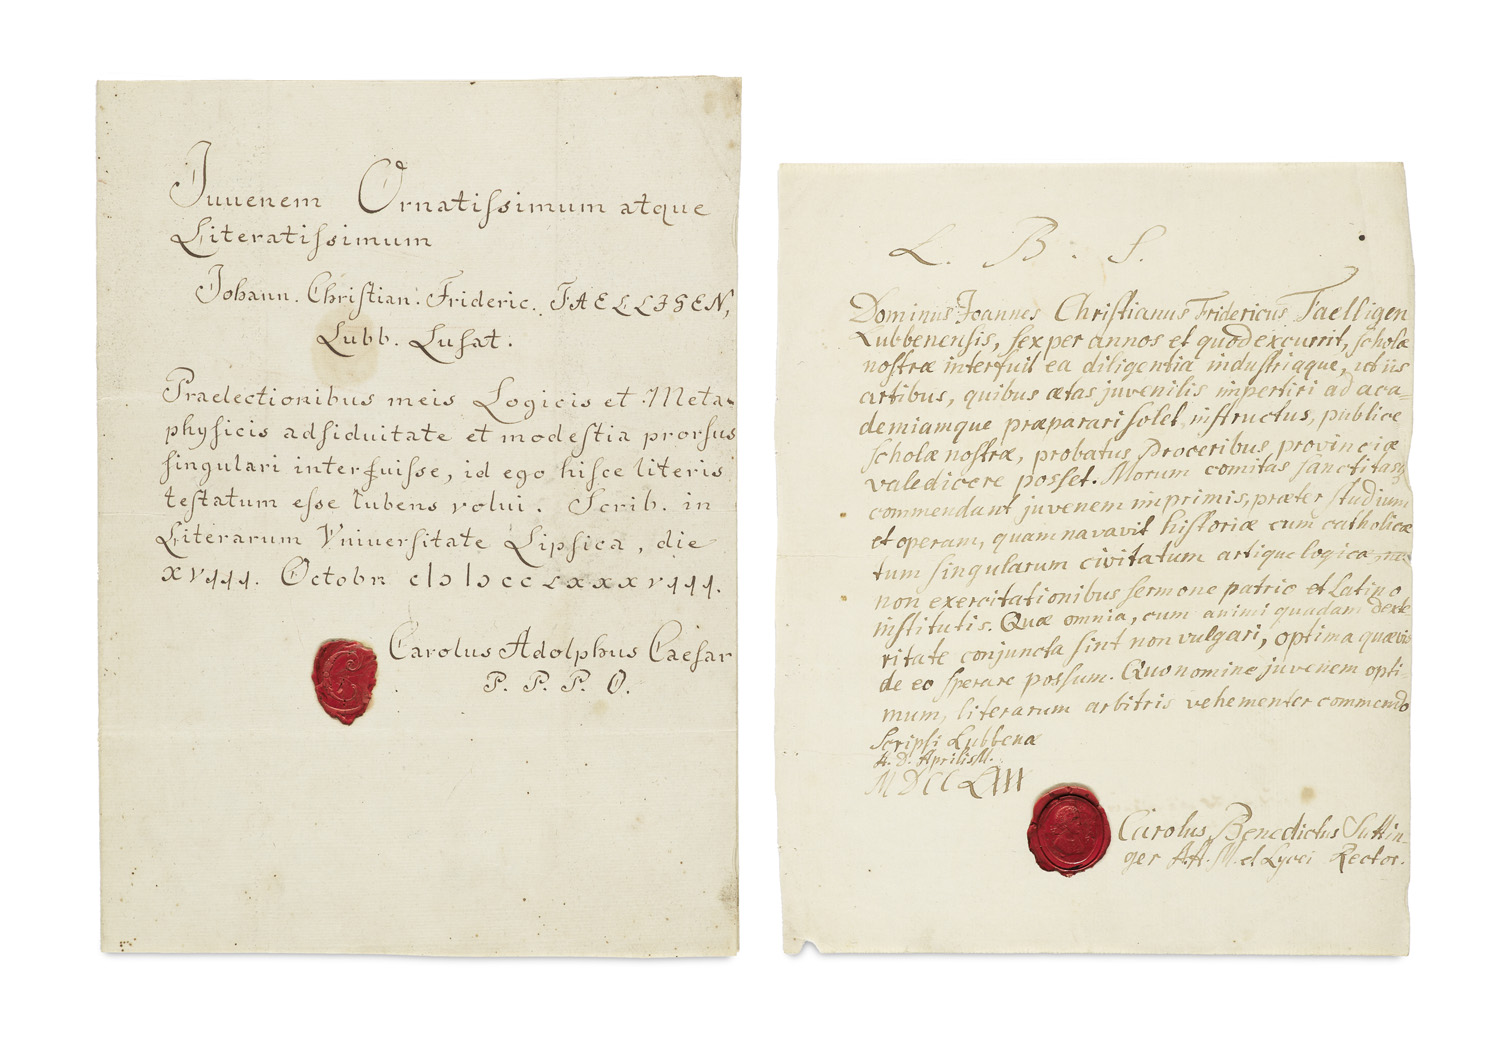 Juuenem Ornatiſsimum atque
Literatiſsimum
Johann. Chriſtian. Frideric. FAELLIGEN,
Lubb. Luſat.
Praelectionibus meis Logicis et Meta-
phyſicis adſiduitate et modeſtia prorſus
ſingulari interfuiſse, id ego hiſce literis
teſtatum eſse lubens volui. Scrib. in
Literarum Vniuerſitate Lipſica, die
XVIII. Octobr. cIↄ Iↄcc LXXXVIII.
Carolus Adolphus Caeſar
P. P. P. O.
L. B. S.
Dominus Joannes Chriſtianus Fridericus Faelligen
Lubbenenſis, ſex per annos et quod excurrit, ſcholæ
noſtræ interfuit ea diligentia induſtriaque, ut iis
artibus, quibus ætas juvenilis impertiri ad aca-
demiamque præparari ſolet inſtructus, publice
ſcholæ noſtræ, probatus Proceribus provinciæ
valedicere poſſet. Morum comitas ſanctitasq
commendant juvenem imprimis, præter ſtudium
et operam, quam navavit hiſtoriæ cum catholicæ
tum ſingularum civitatum artique logicæ,
non exercitationibus ſermone patrio et Latino
inſtitutis. Quæ omnia, cum animi quadam dexte
ritate conjuncta ſint non vulgari, optima quævis
de eo ſperare poſſum. Quo nomine juvenem opti-
mum, literarum arbitris vehementer commendo
Scripſi Lubbenæ
Aprilis
Carolus Benedictus Suttin-
ger AA. M. et Lycei Rector.